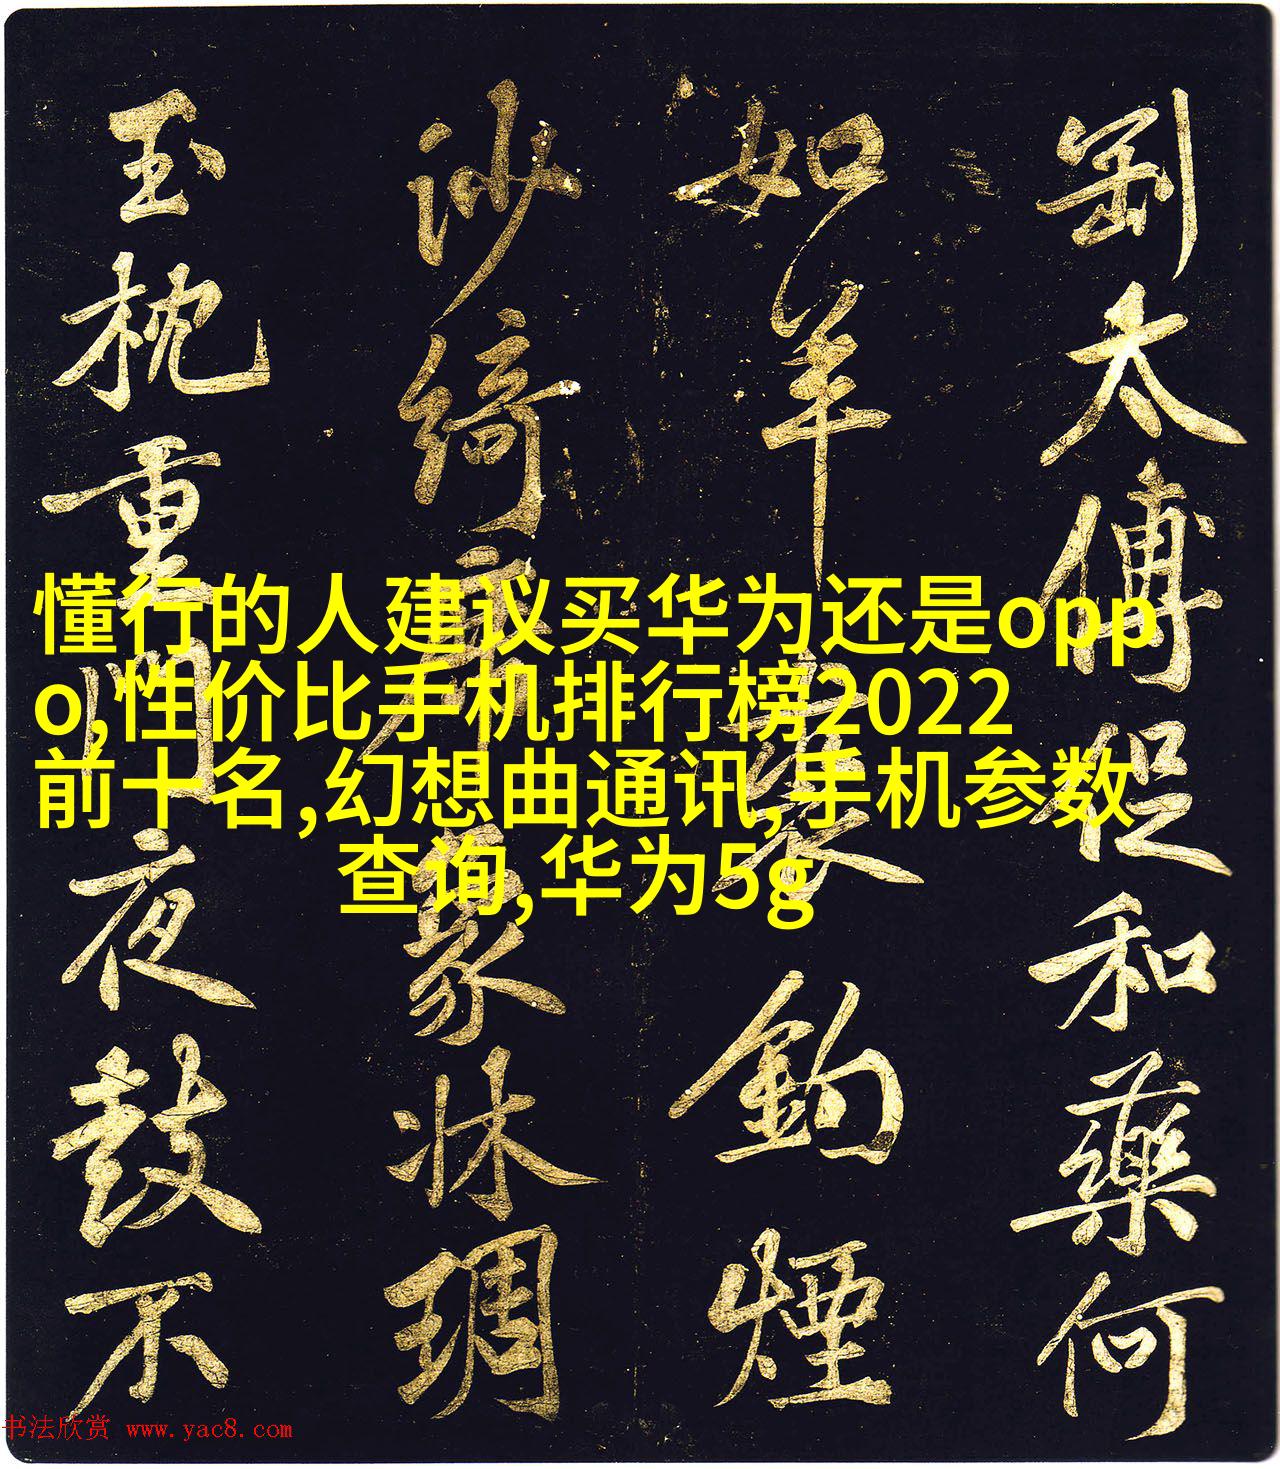 太傅促和藥何
如羊裘釣煙
沙綺席象牀琱
玉枕重門夜鼓不
懂行的人建议买华为还是opp
o,性价比手机排行榜2022
前十名,幻想曲通讯,手机参数
查询,华为5g
书法欣赏 www.yac8.com